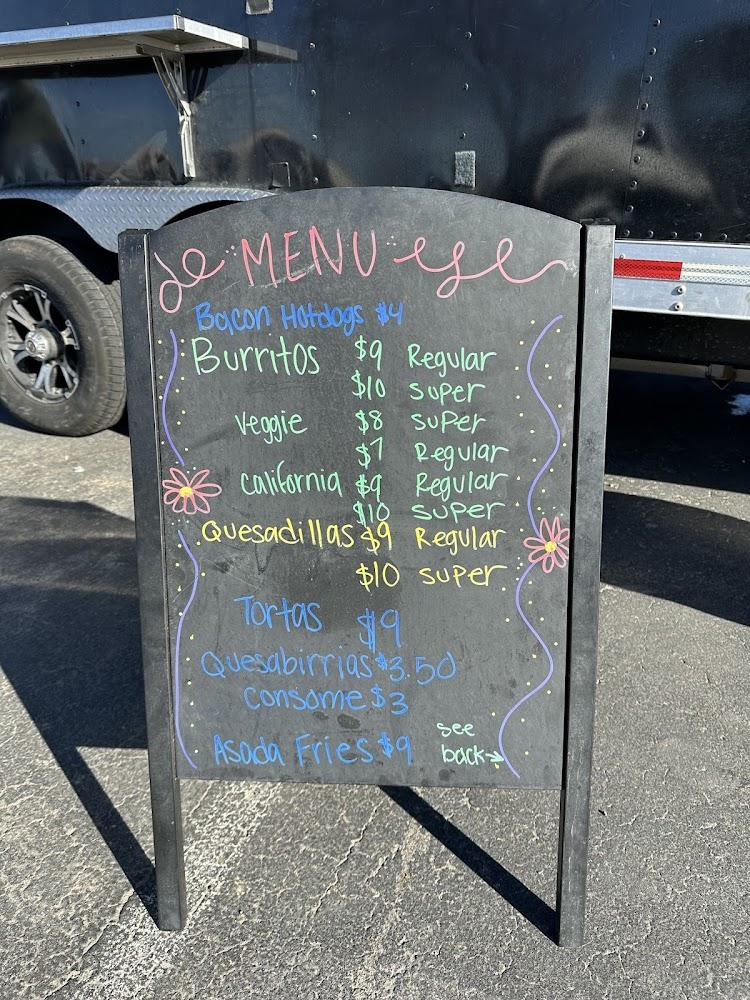 MENU
Bacon Hotdogs $4
Burritos $9 Regular
$10 super
Veggie $8 suPer
$7 Regular
california $9 Regular
$10 super
Quesadillas $9 Regular
$10 super
Tortas $9
Quesabirrias $3.50
consome $3
Asada Fries $9
see
back→